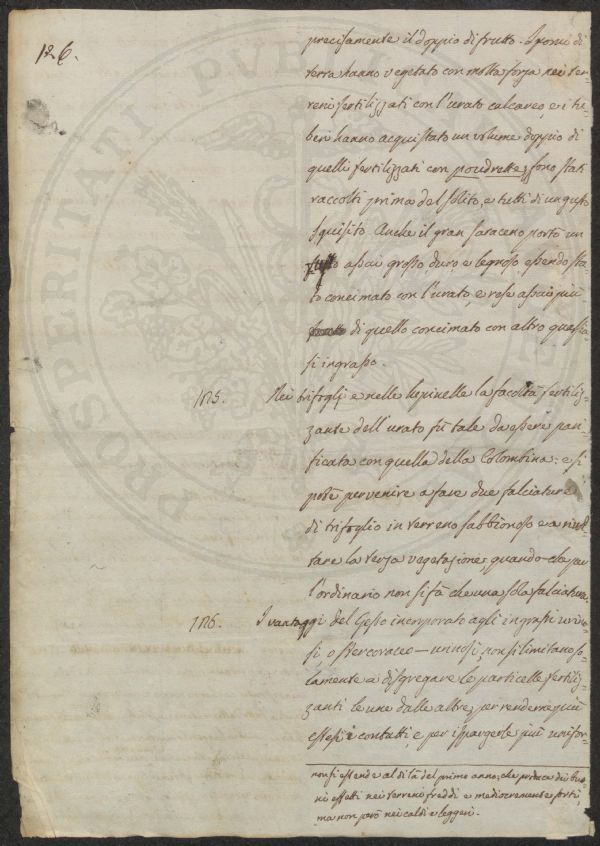 126.
precisamente il doppio di frutto. I pomi di
terra hanno vegetato con molta forza nei ter
reni fertilizzati con l'urato calcareo, e i tu-
beri hanno acquistato un volume doppio di
quelli fertilizzati con poudrette; sono stati
raccolti prima del solito, e tutti di un gusto
squisito. Anche il gran saraceno portò un
assai grosso, duro, e legnoso essendo sta
to concimato con l'urato, e rese assai più
di quello concimato con altro qualsia-
si ingrasso.
Nei trifogli, e nelle lupinelle la facoltà fertiliz-
zante dell'urato fù tale da essere pari
ficata con quella della Colombina: e si
potè pervenire a fare due falciature
di trifoglio in terreno sabbionoso e a
tare la terza vegetazione, quando che per
l'ordinario non si fà che una sola falciatura.
176. I vantaggi del Gesso incorporato agli ingrassi urino
si, o stercoraceo-urinosi, non si limitano so
lamente a disgregare le particelle fertiliz-
zanti le une dalle altre, per renderne più
estesi i contatti, e per ispargerle più unifor-
non si estende al di là del primo anno; che produca dei buo-
ni effetti nei terreni freddi e mediocremente forti,
ma non però nei caldi e leggeri.
PROSPERITATI PUBLICAE